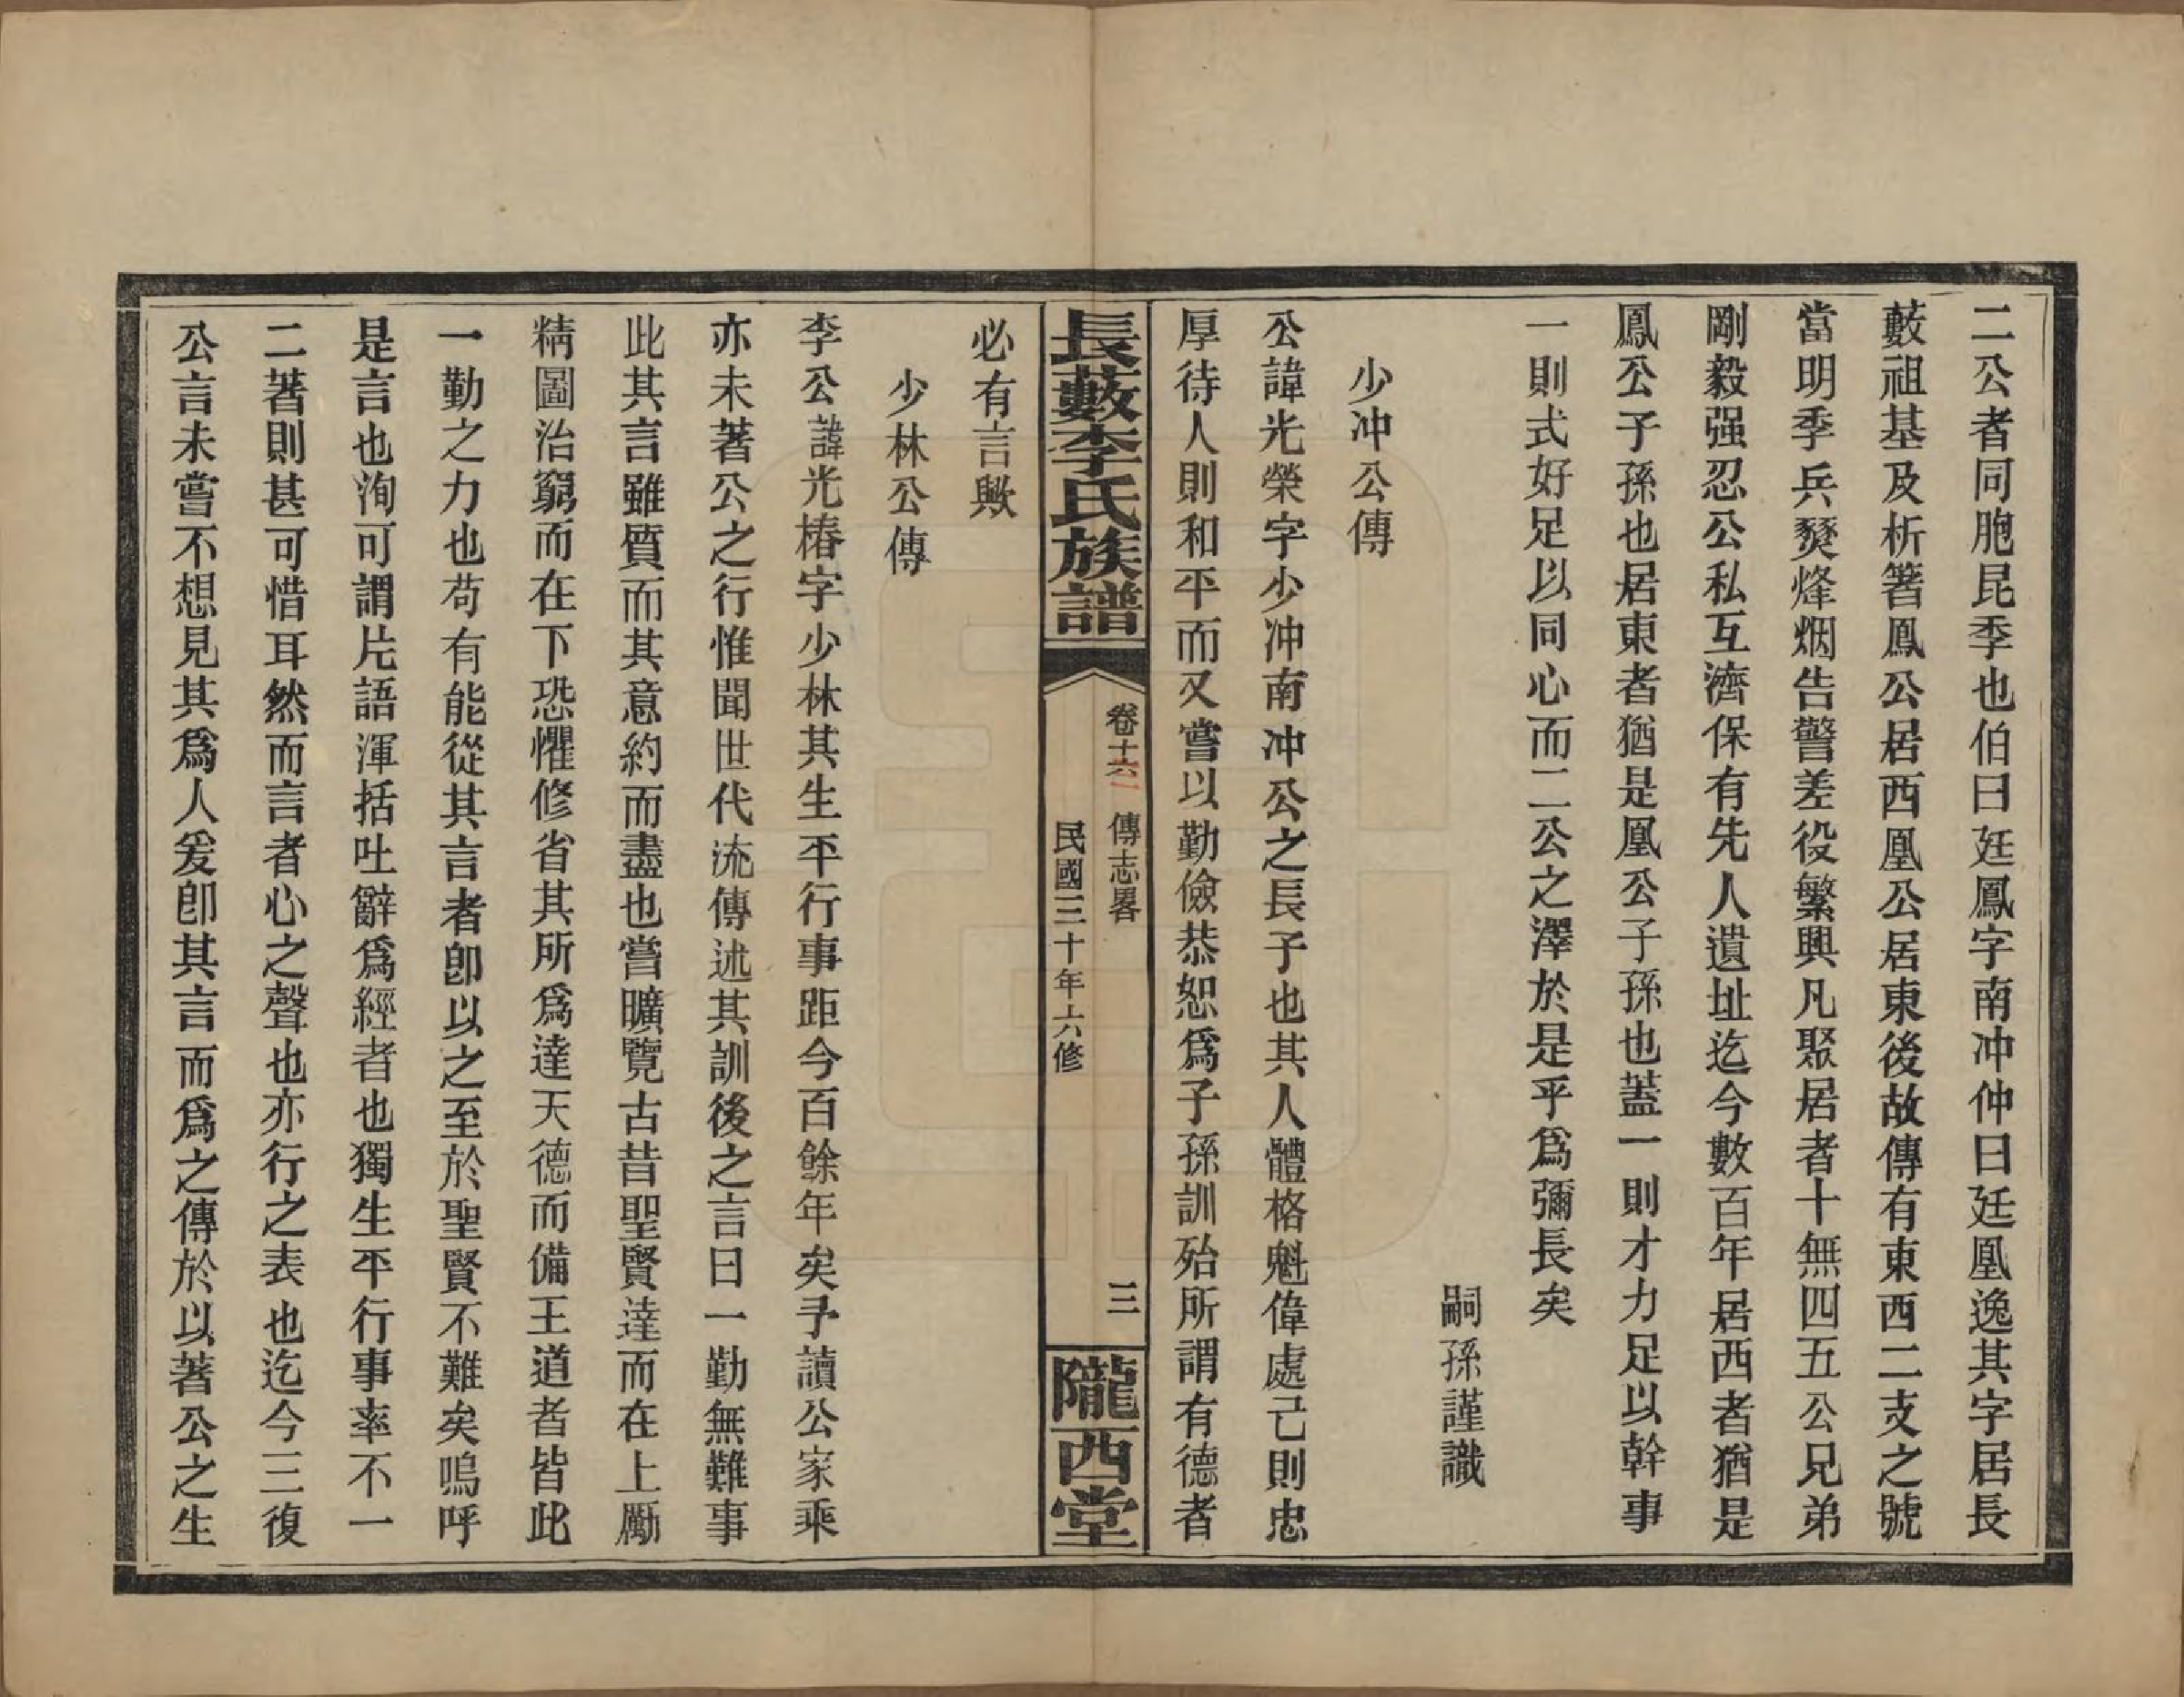 二公者同胞昆季也伯曰廷鳳字南冲仲曰廷凰逸其字居長
藪祖基及析箸鳳公居西凰公居東後故傳有東西二支之號
當明季兵燹烽烟告警差役繁興凡聚居者十無四五公兄弟
剛毅强忍公私互濟保有先人遺址迄今數百年居西者猶是
鳳公子孫也居東者猶是凰公子孫也蓋一則才力足以幹事
一則式好足以同心而二公之澤於是乎爲彌長矣
嗣孫謹識
少冲公傳
公諱光榮字少冲南冲公之長子也其人體格魁偉處己則忠
厚待人則和平而又嘗以勤儉恭恕爲子孫訓殆所謂有德者
長藪李氏族譜
卷十六 傳志畧
三
民國三十年六修
隴西堂
必有言歟
少林公傳
李公諱光椿字少林其生平行事距今百餘年矣予讀公家乘
亦未著公之行惟聞世代流傳述其訓後之言曰一勤無難事
此其言雖質而其意約而盡也嘗曠覽古昔聖賢達而在上勵
精圖治窮而在下恐懼修省其所爲達天德而備王道者皆此
一勤之力也苟有能從其言者卽以之至於聖賢不難矣嗚呼
是言也洵可謂片語渾括吐辭爲經者也獨生平行事率不一
二著則甚可惜耳然而言者心之聲也亦行之表也迄今三復
公言未嘗不想見其爲人爰卽其言而爲之傳於以著公之生